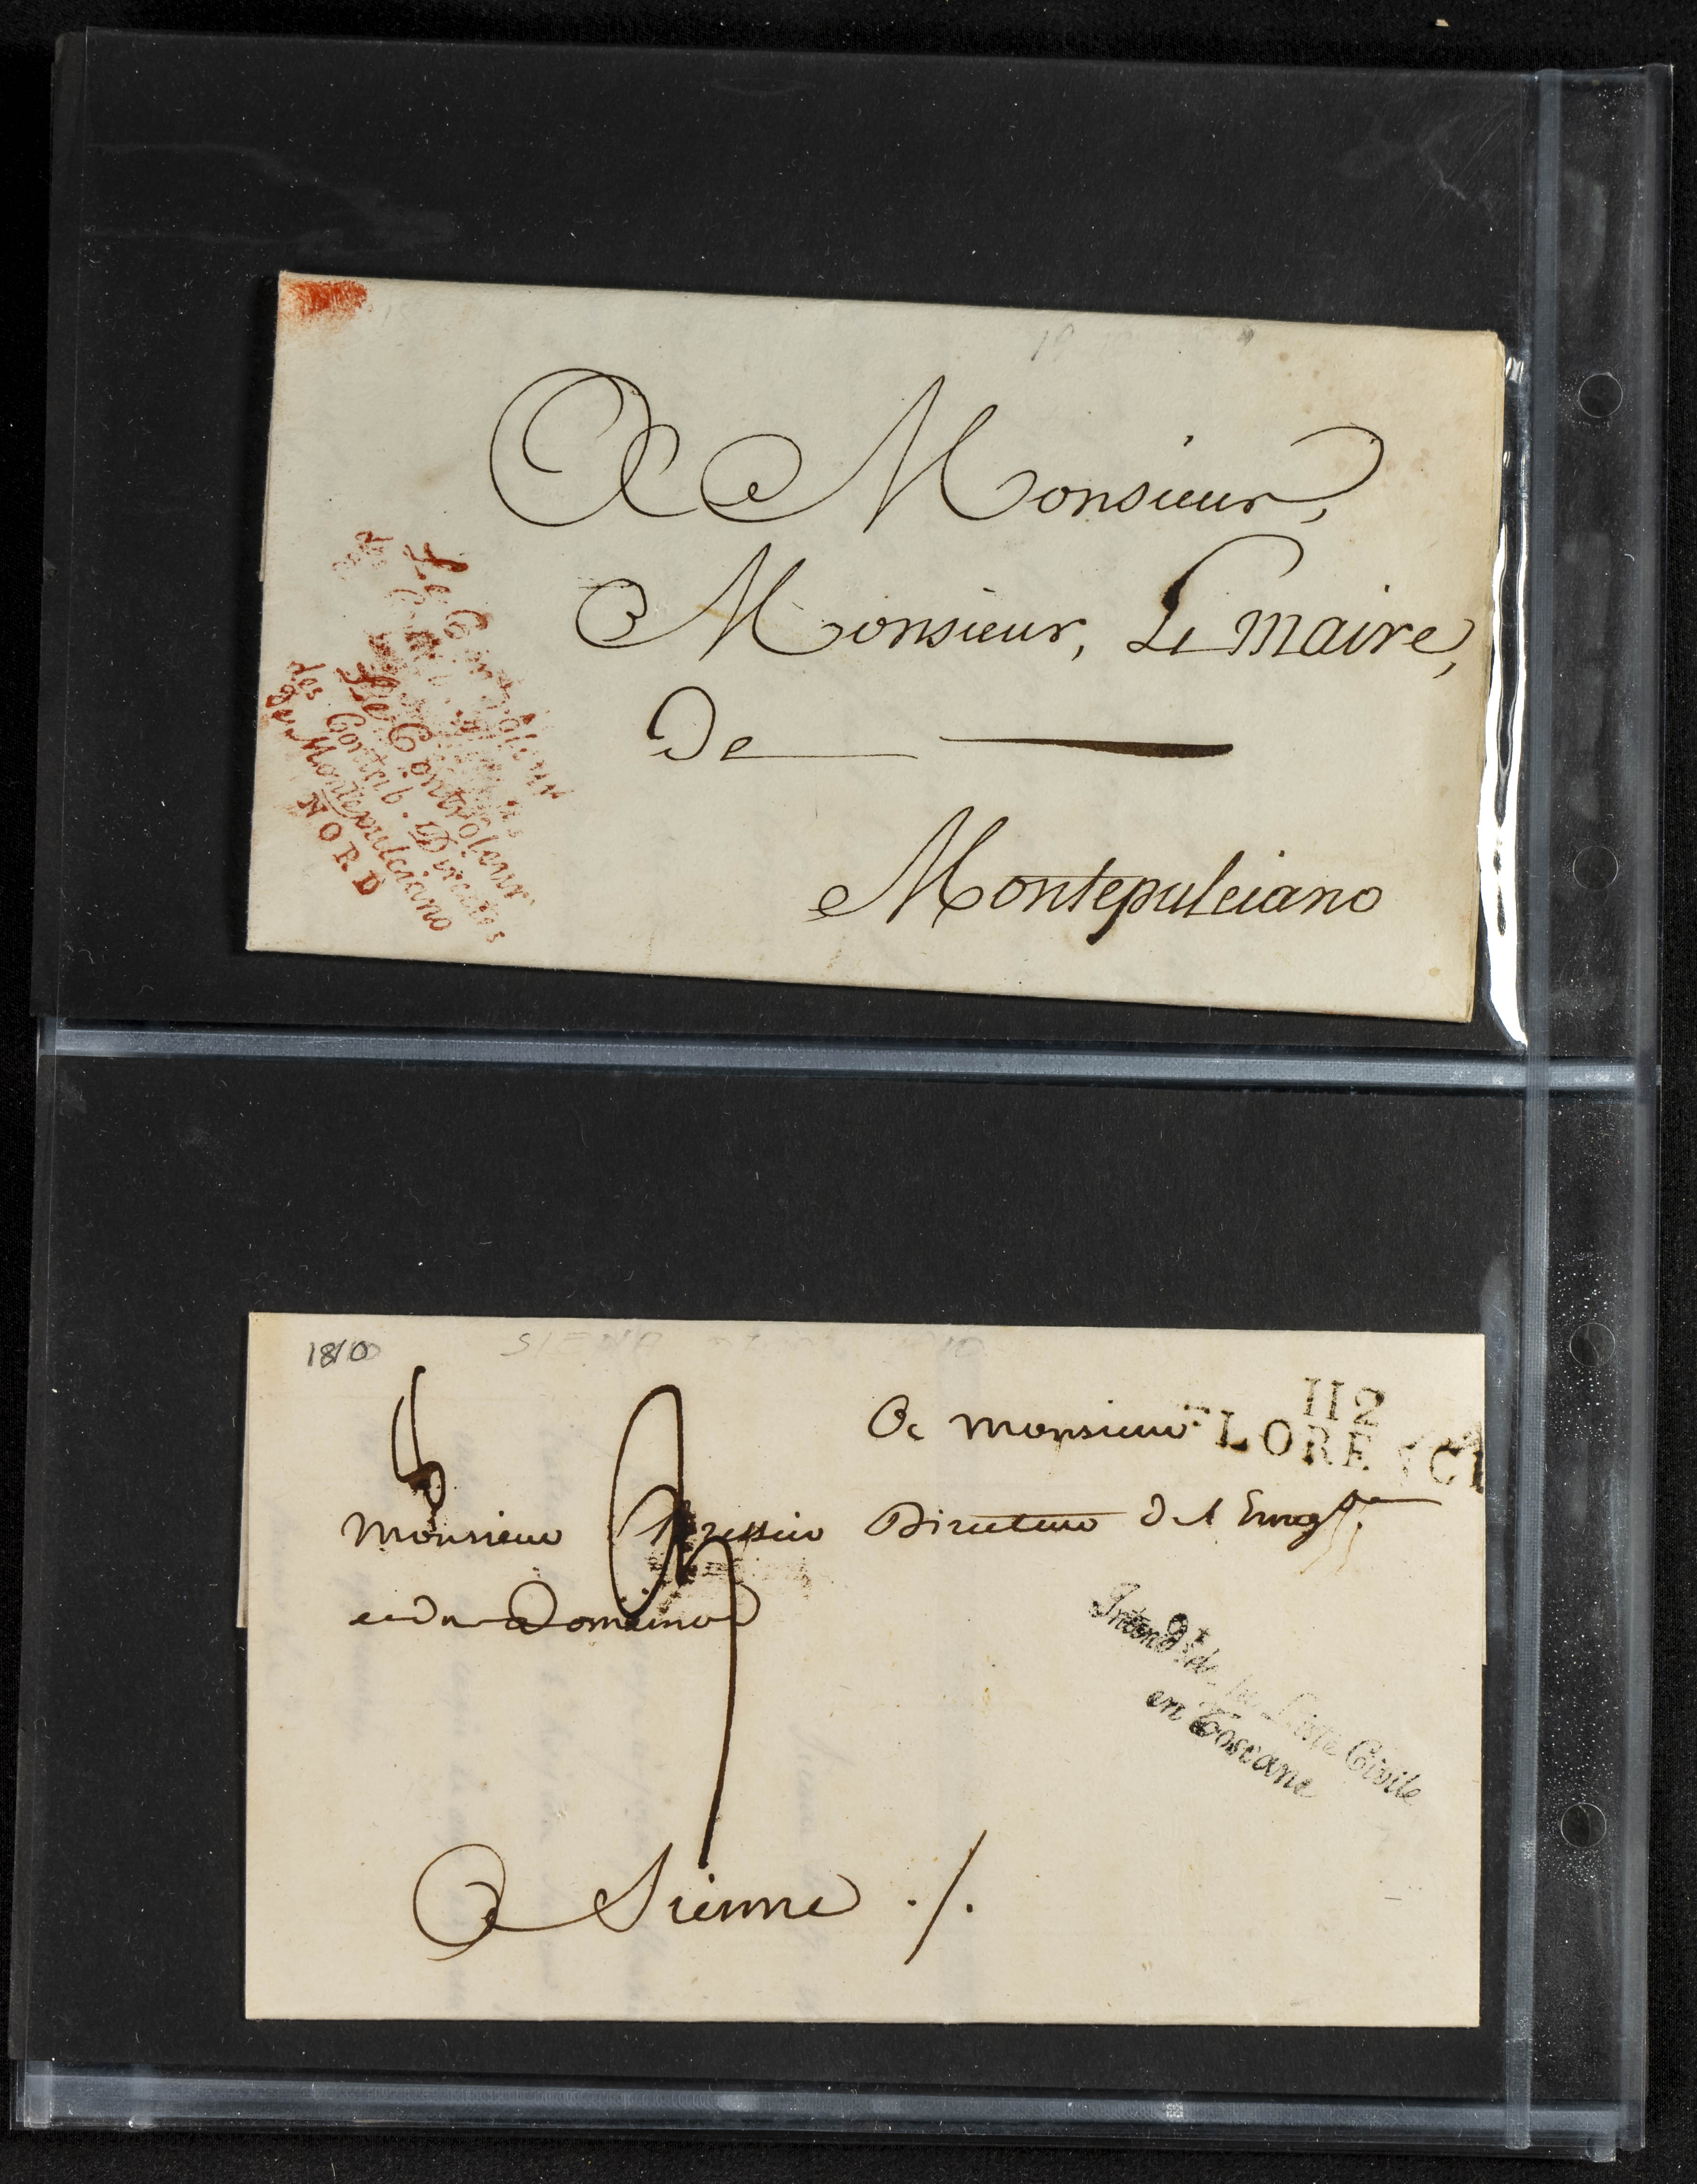 A Monsieur,
Monsieur, Le Maire,
De
Montepulciano
Le Controleur
Le Controleur
des Contrib. Directes
de Montepulciano
NORD
1810
112
FLORENCE
A Monsieur
Monsieur Directeur De l'Enreg
et Domaines
Intend. de la Liste Civile
en Toscane
A Sienne ./.